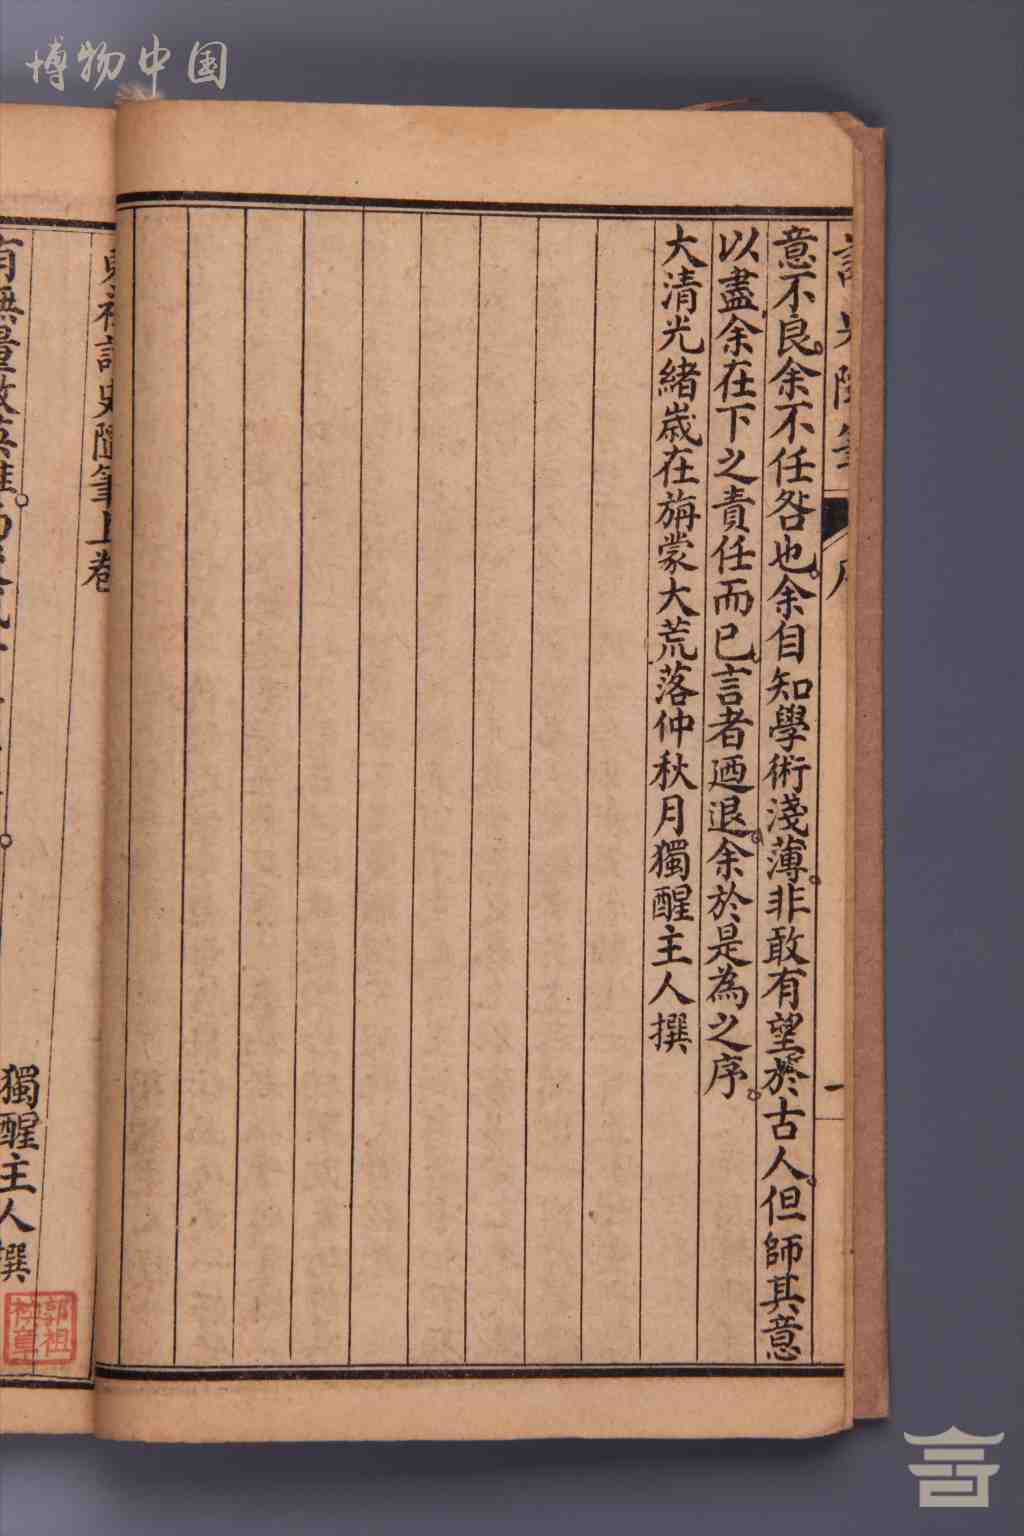 博物中国
意不良余不任咎也余自知學術淺薄非敢有望於古人但師其意
以盡余在下之責任而已言者迺退余於是為之序
大清光緒歲在旃蒙大荒落仲秋月獨醒主人撰
讀史隨筆 序 一
讀史隨筆上卷
獨醒主人撰
有無量數英雄
郭祖
章